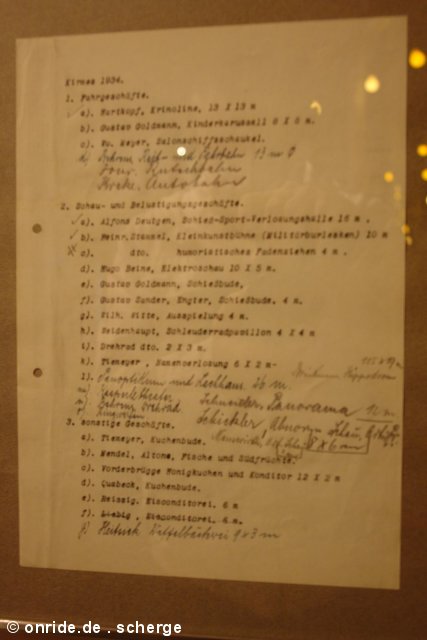 Kirmes 1934.
1. Fuhrgeschäfte.
a). Hartkopf, Krinoline, 13 X 13 m
b). Gustav Goldmann, Kinderkarussell 8 X 8 m.
c). Ww. Meyer, Salonschiffschaukel.
d) - und 13 m
Autobahn
2. Schau- und Belustigungsgeschäfte.
a). Alfons Deutgen, Schieß-Sport-Verlosungshalle 16 m .
b). Heinr. Stassel, Kleinkunstbühne (Militärburlesken) 10 m
c). dto. humoristisches Fadenziehen 4 m .
d). Hugo Heine, Elektroschau 10 X 5 m.
e). Gustav Goldmann, Schießbude,
f). Gustav Sander, Engter, Schießbude. 4 m.
g). Wilh. Witte, Ausspielung 4 m.
h). Heidenhaupt, Schleuderradpavillon 4 X 4 m
i). Drehrad dto. 2 X 3 m.
k). Tiemeyer, Namenverlosung 6 X 2 m-
l). Panoptikum und m.
Schneider, Panorama 10 m
Schickler, Abnorm. Schau,
8 x 6 m
3. sonstige Geschäfte.
a). Tiemeyer, Kuchenbude.
b). Wendel, Altona, Fische und Südfrüchte.
c). Vorderbrügge Honigkuchen und Konditor 12 X 2 m
d). Quabeck, Kuchenbude.
e). Reissig, Eisconditorei. 6 m
f). Liebig , Eisconditorei. 6 m.
g) Waffelbäckerei 9 x 3 m
© onride.de . scherge